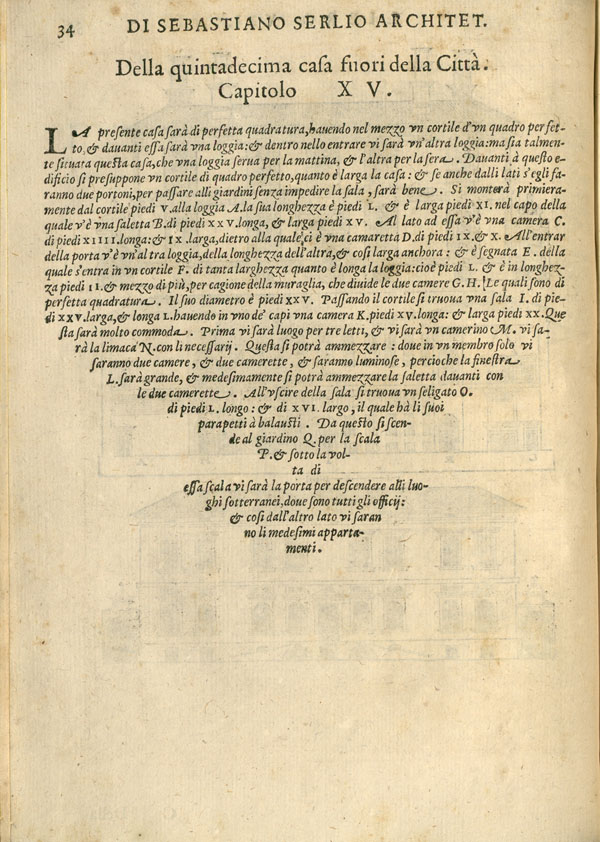 34 DI SEBASTIANO SERLIO ARCHITET.
Della quintadecima casa fuori della Città.
Capitolo X V.
LA presente casa sarà di perfetta quadratura, hauendo nel mezzo vn cortile d'vn quadro perfet-
to, & dauanti essa sarà vna loggia: & dentro nello entrare vi sarà vn'altra loggia: ma sia talmen-
te situata questa casa, che vna loggia serua per la mattina, & l'altra per la sera. Dauanti à questo e-
dificio si presuppone vn cortile di quadro perfetto, quanto è larga la casa: & se anche dalli lati s'egli fa-
ranno due portoni, per passare alli giardini senza impedire la sala, sarà bene. Si monterà primiera-
mente dal cortile piedi v. alla loggia A. la sua longhezza è piedi L. & è larga piedi XI. nel capo della
quale v'è vna saletta B. di piedi XXV. longa, & larga piedi XV. Al lato ad essa v'è vna camera C.
di piedi XIIII. longa: & IX. larga, dietro alla quale, ci è vna camaretta D. di piedi IX. & X. All'entrar
della porta v'è vn'altra loggia, della longhezza dell'altra, & così larga anchora: & è segnata E. della
quale s'entra in vn cortile F. di tanta larghezza quanto è longa la loggia: cioè piedi L. & è in longhez-
za piedi II. & mezzo di più, per cagione della muraglia, che diuide le due camere G. H. Le quali sono di
perfetta quadratura. Il suo diametro è piedi XXV. Passando il cortile si truoua vna sala I. di pie-
di XXV. larga, & longa L. hauendo in vno de' capi vna camera K. piedi XV. longa: & larga piedi XX. Que
sta sarà molto commoda. Prima vi sarà luogo per tre letti, & vi sarà vn camerino M. vi sa-
rà la limaca N. con li necessarij. Questa si potrà ammezzare: doue in vn membro solo vi
saranno due camere, & due camerette, & saranno luminose, percioche la finestra
L. sarà grande, & medesimamente si potrà ammezzare la saletta dauanti con
le due camerette. All'vscire della sala si truoua vn seligato O.
di piedi L. longo: & di XVI. largo, il quale hà li suoi
parapetti à balausti. Da questo si scen-
de al giardino Q. per la scala
P. & sotto la vol-
ta di
essa scala vi sarà la porta per descendere alli luo-
ghi sotterranei, doue sono tutti gli officij:
& così dall'altro lato vi saran
no li medesimi apparta-
menti.